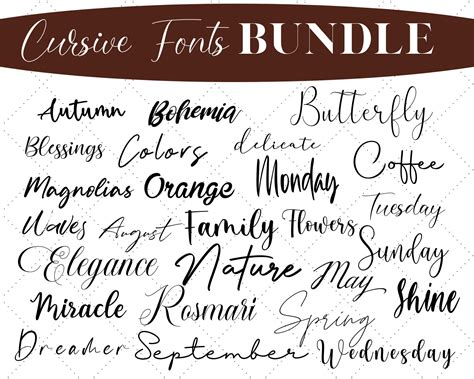 Cursive Fonts BUNDLE
Autumn Bohemia Butterfly
Blessings Colors delicate
Coffee
Magnolias Orange Monday
Tuesday
Waves August Family Flowers
Sunday
Elegance Nature May
Shine
Miracle Rosmari Spring
Dreamer September Wednesday